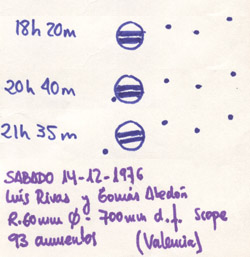 18h 20m
20h 40m
21h 35m
SABADO 14-12-1976
Luis Rivas y Tomás
R.60mm Ø- 700mm d.f. Scope
93 aumentos (Valencia)